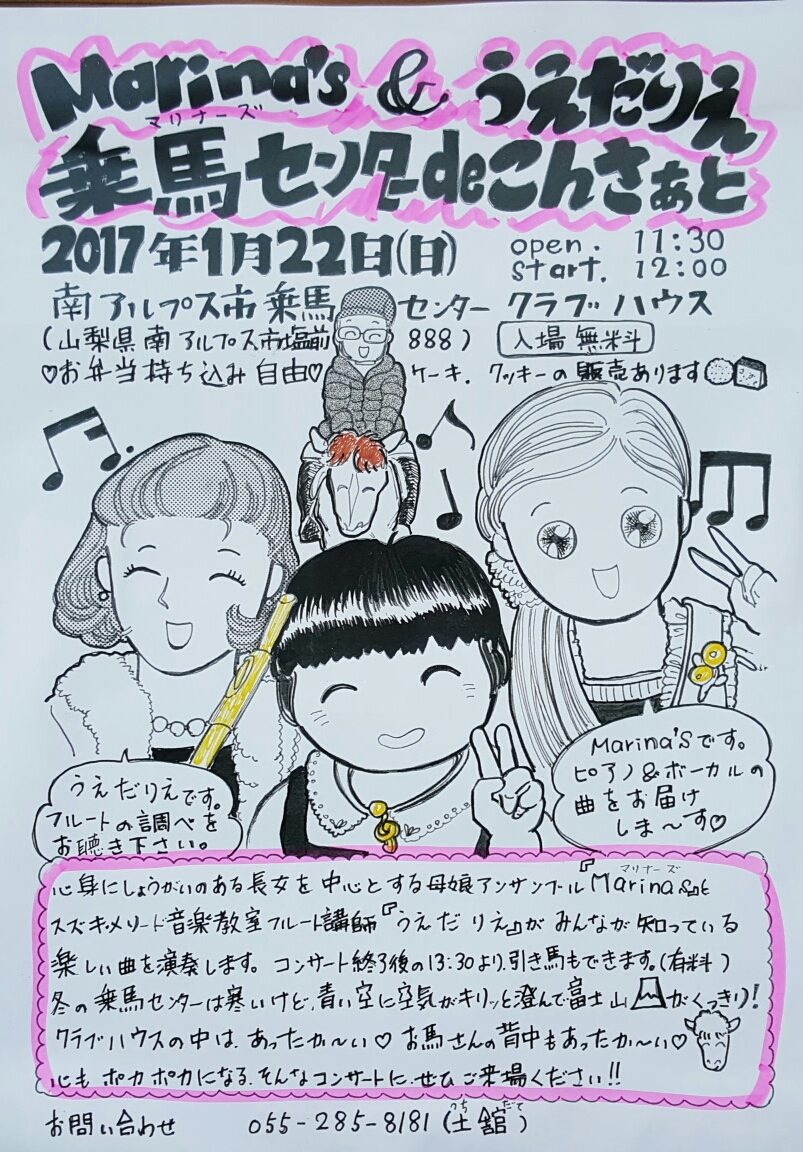 Marina's & うえだりえ
マリナーズ
乗馬センターdeこんさぁと
2017年1月22日(日)
open. 11:30
start. 12:00
南アルプス市乗馬センター クラブハウス
(山梨県南アルプス市塩前888) 入場無料
♡お弁当持ち込み自由♡ ケーキ.クッキーの販売あります
うえだりえです。
フルートの調べを
お聴き下さい。
Marina'sです。
ピアノ&ボーカルの
曲をお届け
しま〜す♡
マリナーズ
心身にしょうがいのある長女を中心とする母娘アンサンブル『Marina's』と
スズキ・メソード音楽教室フルート講師『うえだりえ』がみんなが知っている
楽しい曲を演奏します。コンサート終了後の13:30より、引き馬もできます。(有料)
冬の乗馬センターは寒いけど、青い空に空気がキリッと澄んで富士山がくっきり!
クラブハウスの中は、あったか〜い♡ お馬さんの背中もあったか〜い♡
心もポカポカになる、そんなコンサートに、ぜひご来場ください!!
つちだて
お問い合わせ 055-285-8181(土舘)